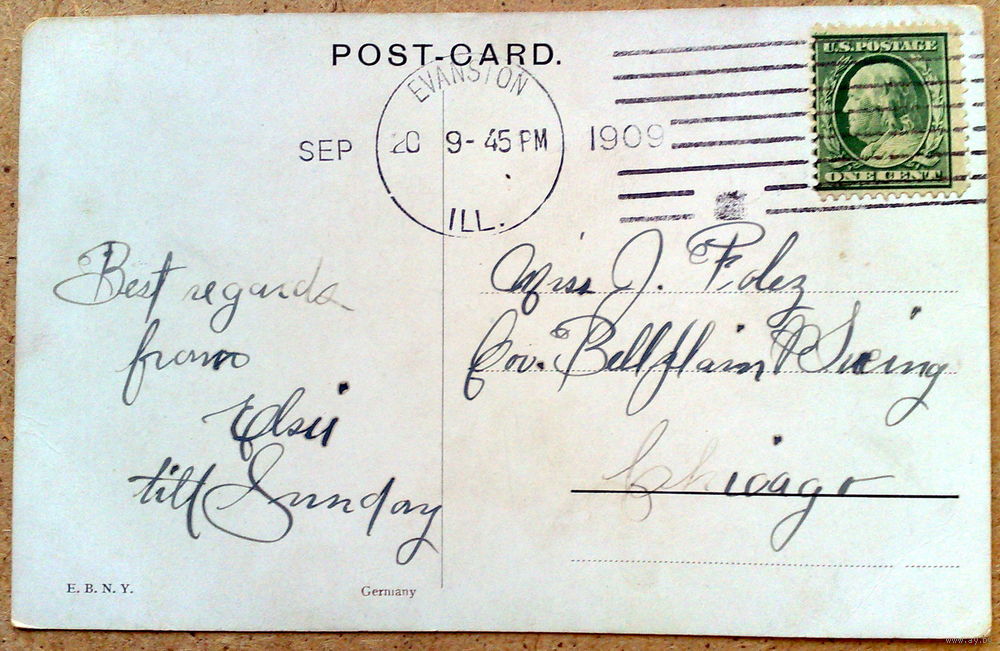 POST-CARD.
U.S. POSTAGE
ONE CENT
EVANSTON
SEP 20 9-45 PM 1909
ILL.
Best regards
from
Elsie
till Sunday
Miss J. Folez
Cov. Bellflain
Chicago
E. B. N. Y.
Germany